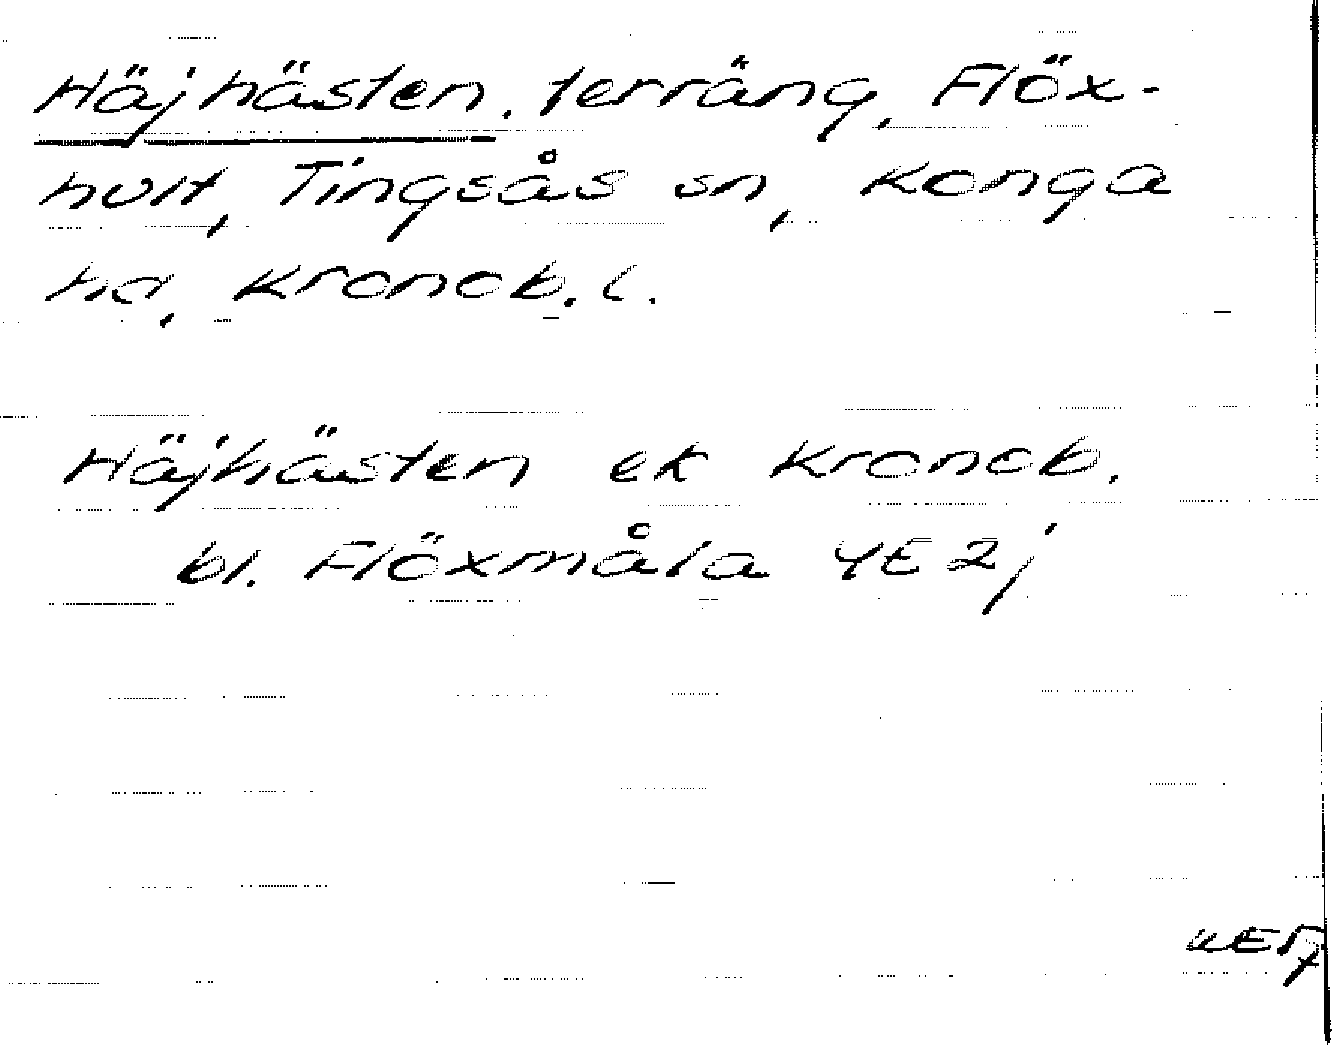 Häjhästen, terräng, Flöx-
hult, Tingsås sn, Konga
hd, Kronob. l.
Häjhästen ek Kronob.
bl. Flöxmåla 4E 2j